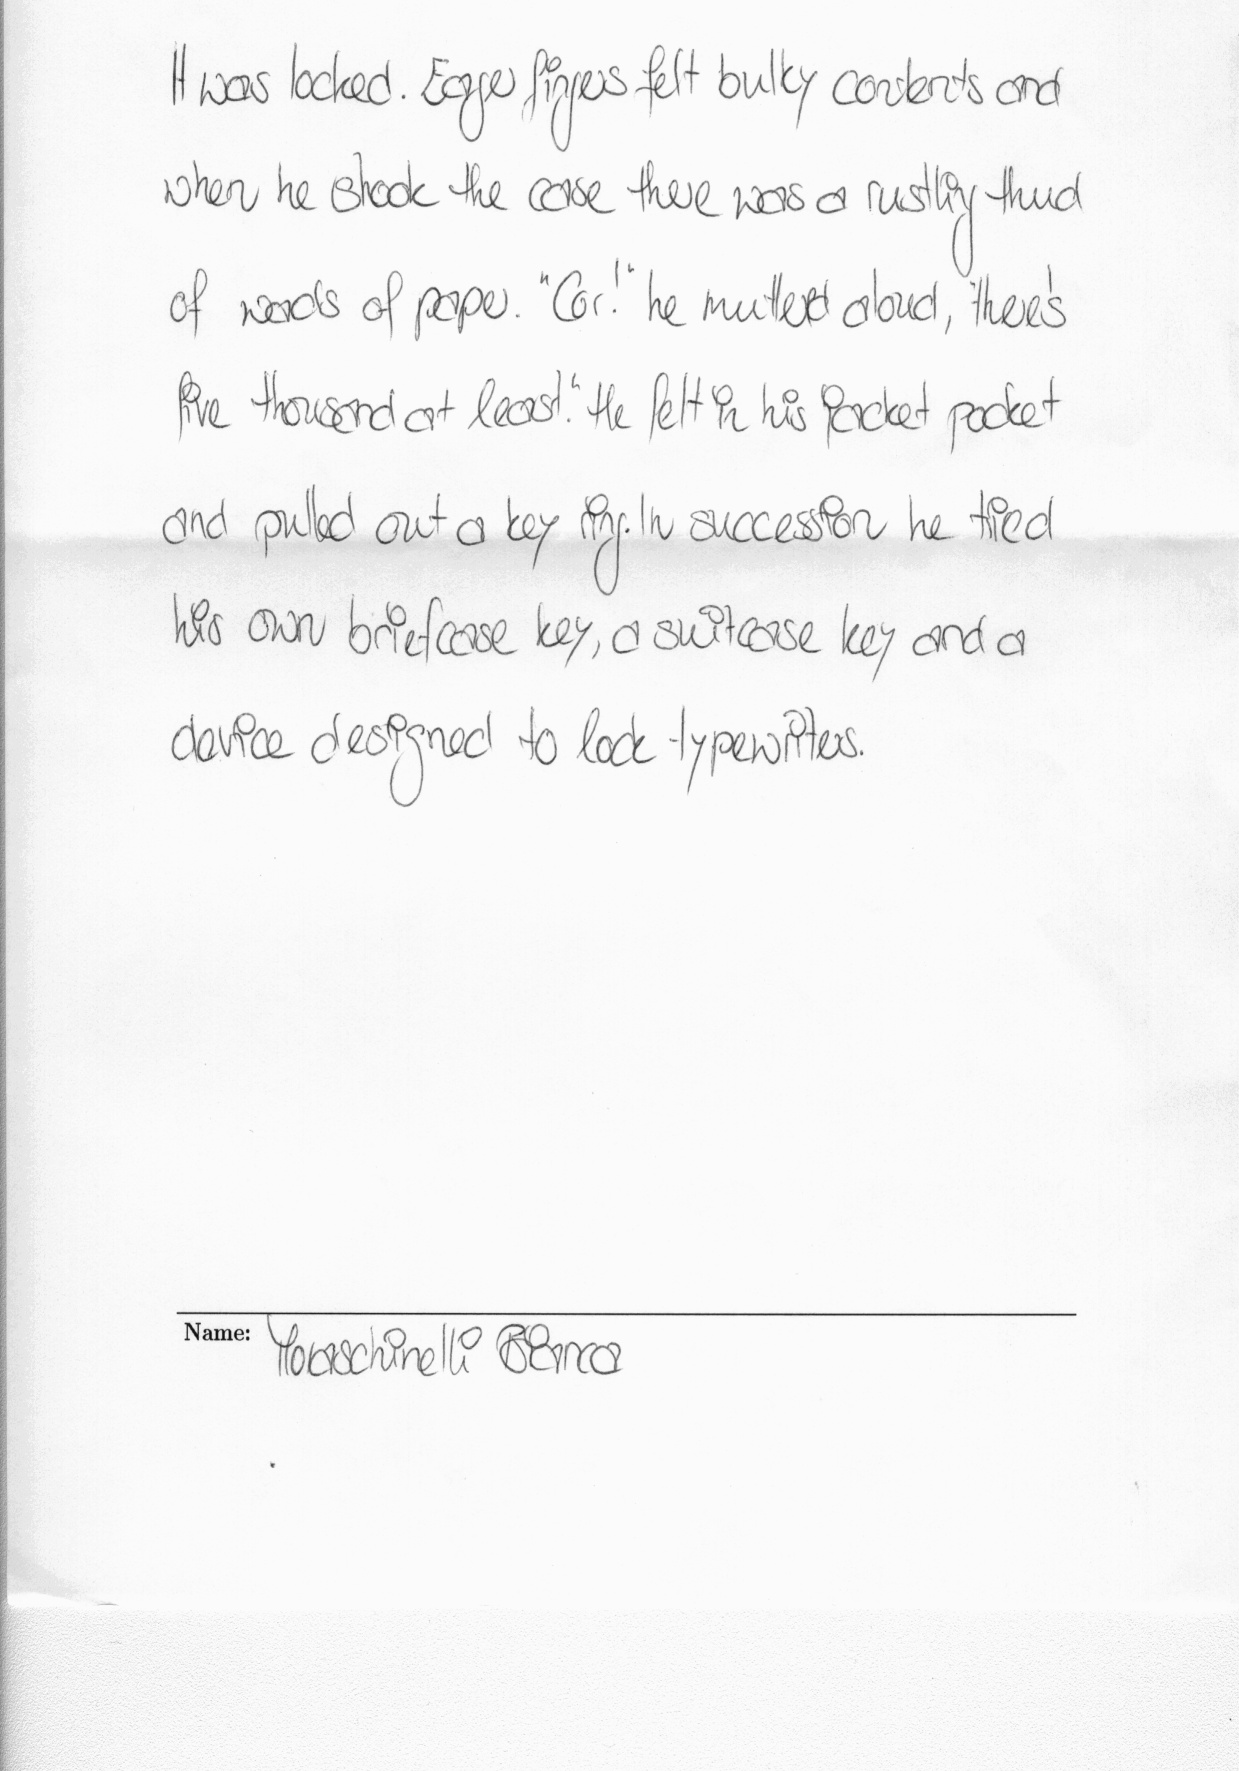 It was locked. Eager fingers felt bulky contents and
when he shook the case there was a rustling thud
of wads of paper. "Cor!" he muttered aloud, "there's
five thousand at least." He felt in his jacket pocket
and pulled out a key ring. In succession he tried
his own briefcase key, a suitcase key and a
device designed to lock typewriters.
Name: